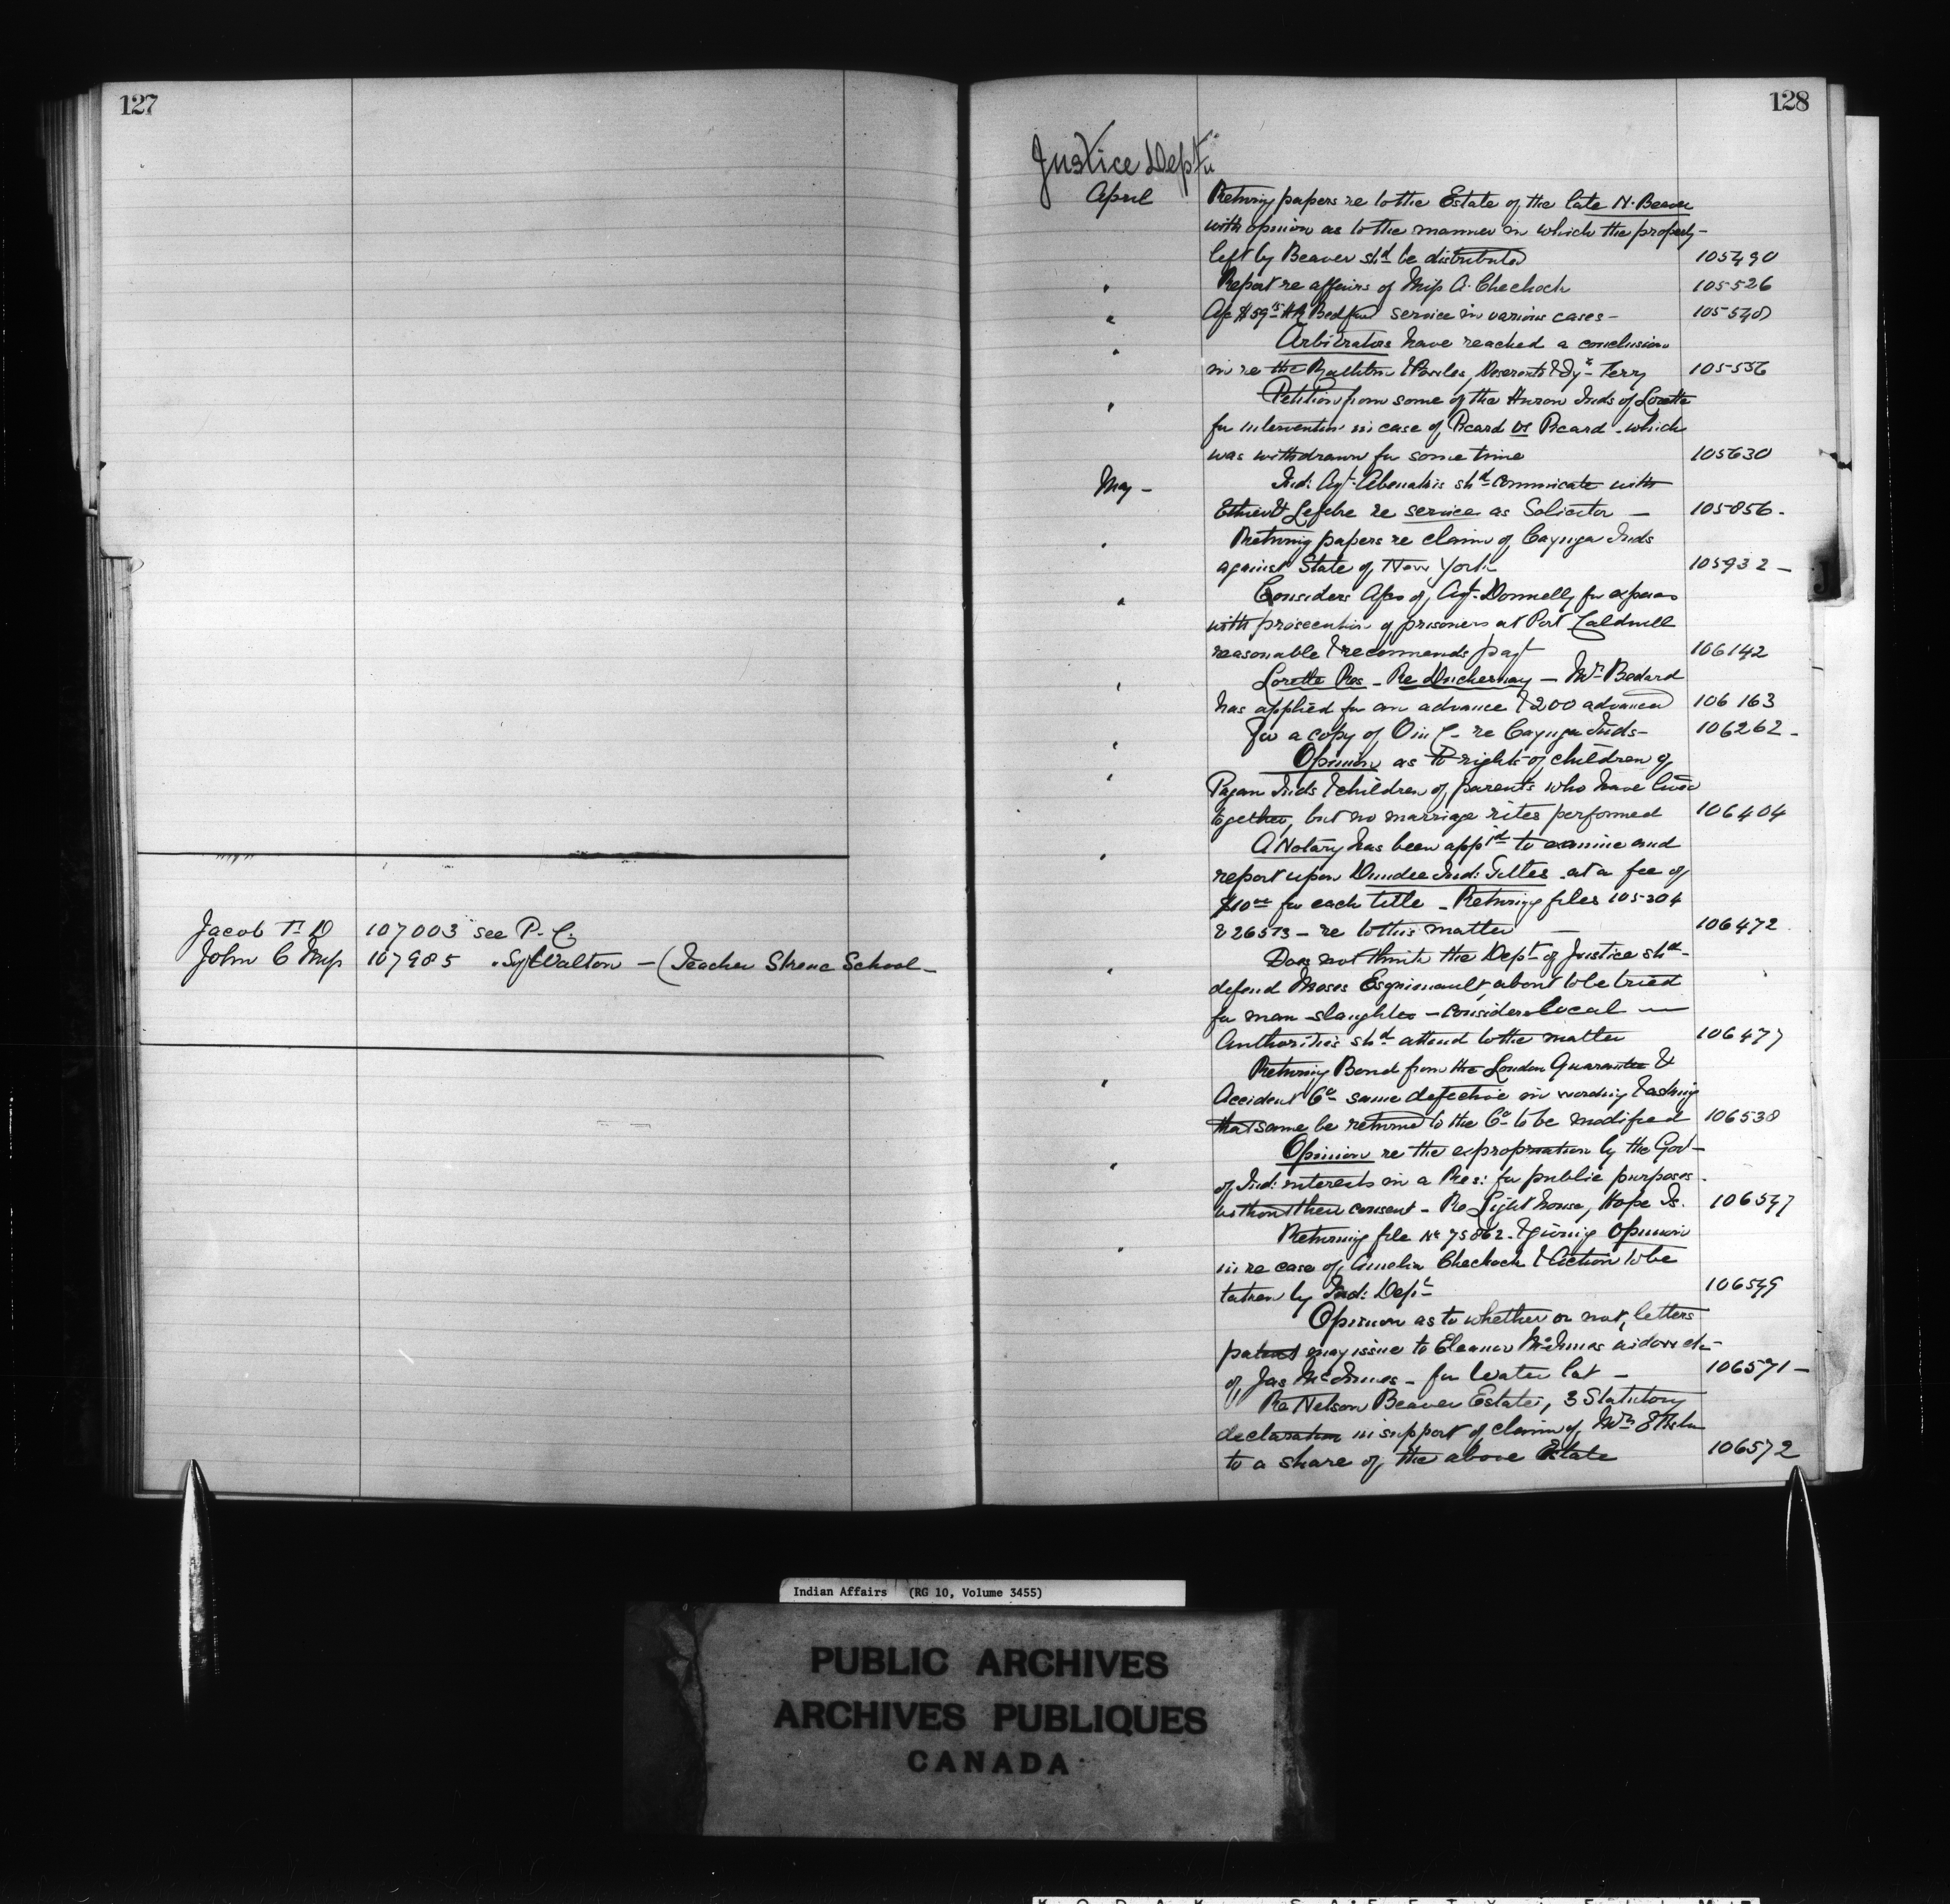 127
Jacob T. D 107003 see P. C.
John C Miss 107985 . Sy Walton - (Teacher Skene School -
128
Justice Dept
April Returng papers re to the Estate of the late N. Beaver
with opinion as to the manner in which the property -
left by Beaver shd be distributed 105490
" Report re affairs of Miss A. Chechock 105526
" A/c $59 15 Bedford service in various cases - 105540
" Arbitrators have reached a conclusion
in re the & Deseronto Ferry 105556
" Petition from some of the Huron Inds of Lorette
for intervention in case of Picard vs Picard - which
was withdrawn for some time 105630
May - Ind: Agt. Abenakis shd comunicate with
Ethier & Lefebre re service as Solicitor - 105856 -
" Returng papers re claim of Cayuga Inds
against State of New York 105932 -
" Considers A/cs of Agt. Donnelly for expenses
with prosecution of prisoners at Port Caldwell
reasonable & recommends payt 106142
" Lorette Res - Re Duchesnay - Mr Bedard
has applied for an advance & 200 advanced 106163
" For a copy of O in C - re Cayuga Inds - 106262 -
" Opinion as to rights of children of
Pagan Inds & children of parents who have lived
together, but no marriage rites performed 106404
" A Notary has been appd to examine and
report upon Dundee Ind: Titles - at a fee of
$10 00 for each title - Returng files 105304
& 26513 - re to this matter - 106472
" Does not think the Dept of Justice shd -
defend Moses Esquimault, about to be tried
for man-slaughter - considers local -
Authorities shd attend to the matter 106477
" Returng Bond from the London Guarantee &
Accident Co same defective in wording & asking
that same be returned to the Co to be modified 106538
" Opinion re the expropriation by the Govt -
of Ind: interests in a Res: for public purposes -
without their consent - Re Lighthouse, Hope Is. 106547
" Returning file No 75862 - & giving Opinion
in re case of Amelia Chechock & Action to be
taken by Ind: Dept 106549
Opinion as to whether or not, letters
patent may issue to Eleanor McInnes widow &c -
of Jas McInnes - for Water lot - 106571 -
Re Nelson Beaver Estate, 3 Statutory
declaration in support of claim of Mrs
to a share of the above Estate 106572
J
Indian Affairs (RG 10, Volume 3455)
PUBLIC ARCHIVES
ARCHIVES PUBLIQUES
CANADA